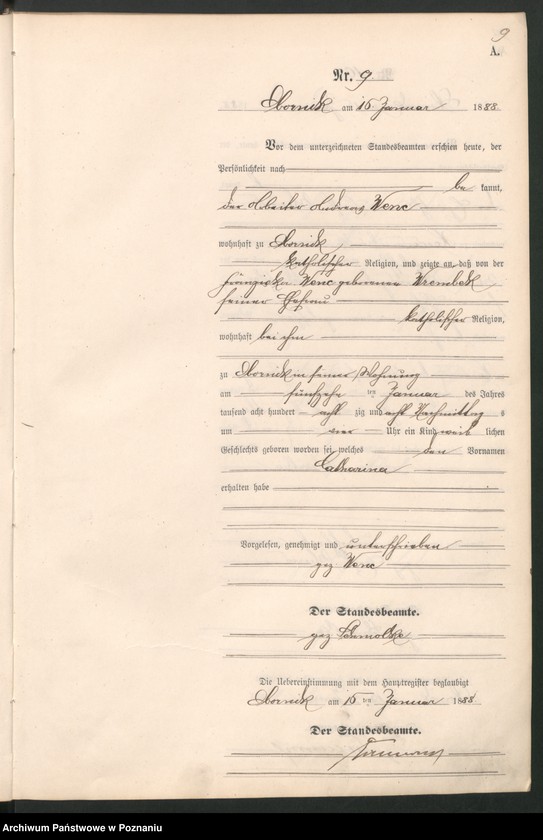 9
A.
Nr. 9
Obornik am 16 Januar 1888.
Vor dem unterzeichneten Standesbeamten erschien heute, der
Persönlichkeit nach
be kannt,
der Arbeiter Andreas Wenc
wohnhaft zu Obornik
katholischer Religion, und zeigte an, daß von der
Franziska Wenc geborenen Wrembek
seiner Ehefrau
katholischer Religion,
wohnhaft bei ihm
zu Obornik in seiner Wohnung
am fünfzehn ten Januar des Jahres
tausend acht hundert acht zig und acht Nachmittag s
um vier Uhr ein Kind weib lichen
Geschlechts geboren worden sei, welches den Vornamen
Catharina
erhalten habe
Vorgelesen, genehmigt und unterschrieben
gez Wenc
Der Standesbeamte.
gez Schmolke
Die Uebereinstimmung mit dem Hauptregister beglaubigt
Obornik am 16 ten Januar 1888
Der Standesbeamte.
Archiwum Państwowe w Poznaniu